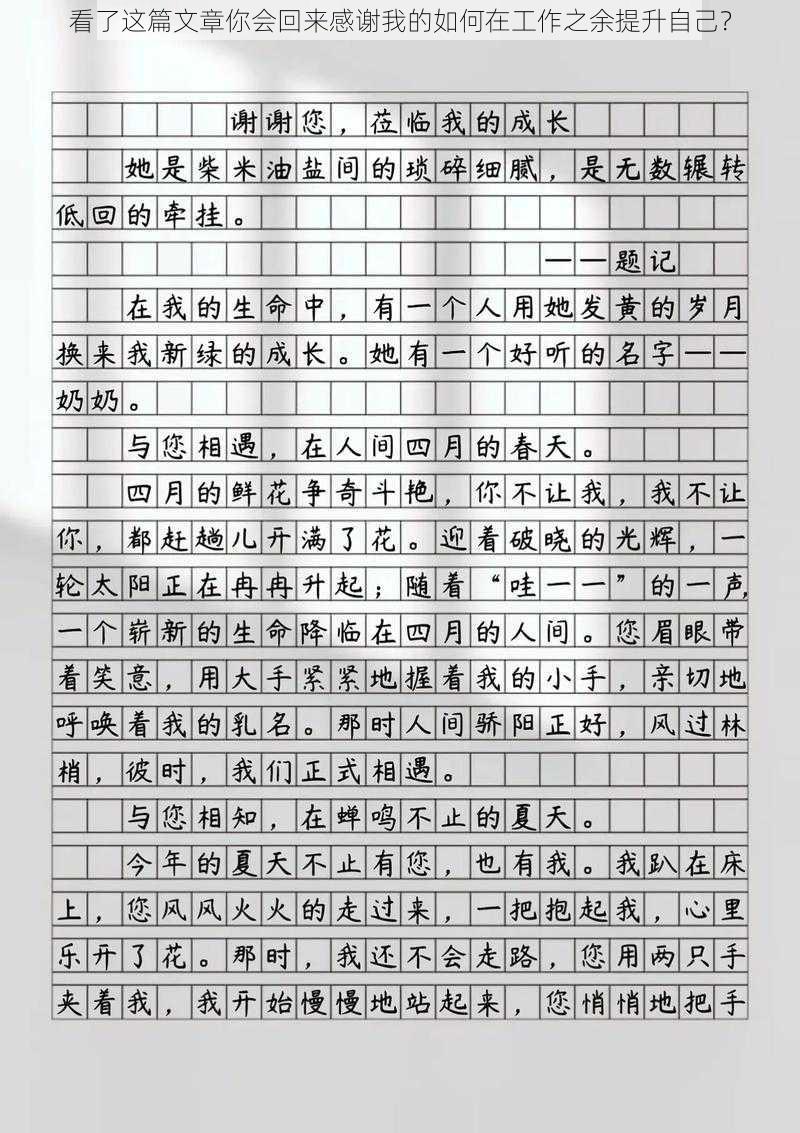 看了这篇文章你会回来感谢我的如何在工作之余提升自己？
谢谢您，莅临我的成长
她是柴米油盐间的琐碎细腻，是无数辗转
低回的牵挂。
——题记
在我的生命中，有一个人用她发黄的岁月
换来我新绿的成长。她有一个好听的名字——
奶奶。
与您相遇，在人间四月的春天。
四月的鲜花争奇斗艳，你不让我，我不让
你，都赶趟儿开满了花。迎着破晓的光辉，一
轮太阳正在冉冉升起；随着“哇——”的一声，
一个崭新的生命降临在四月的人间。您眉眼带
着笑意，用大手紧紧地握着我的小手，亲切地
呼唤着我的乳名。那时人间骄阳正好，风过林
梢，彼时，我们正式相遇。
与您相知，在蝉鸣不止的夏天。
今年的夏天不止有您，也有我。我趴在床
上，您风风火火的走过来，一把抱起我，心里
乐开了花。那时，我还不会走路，您用两只手
夹着我，我开始慢慢地站起来，您悄悄地把手